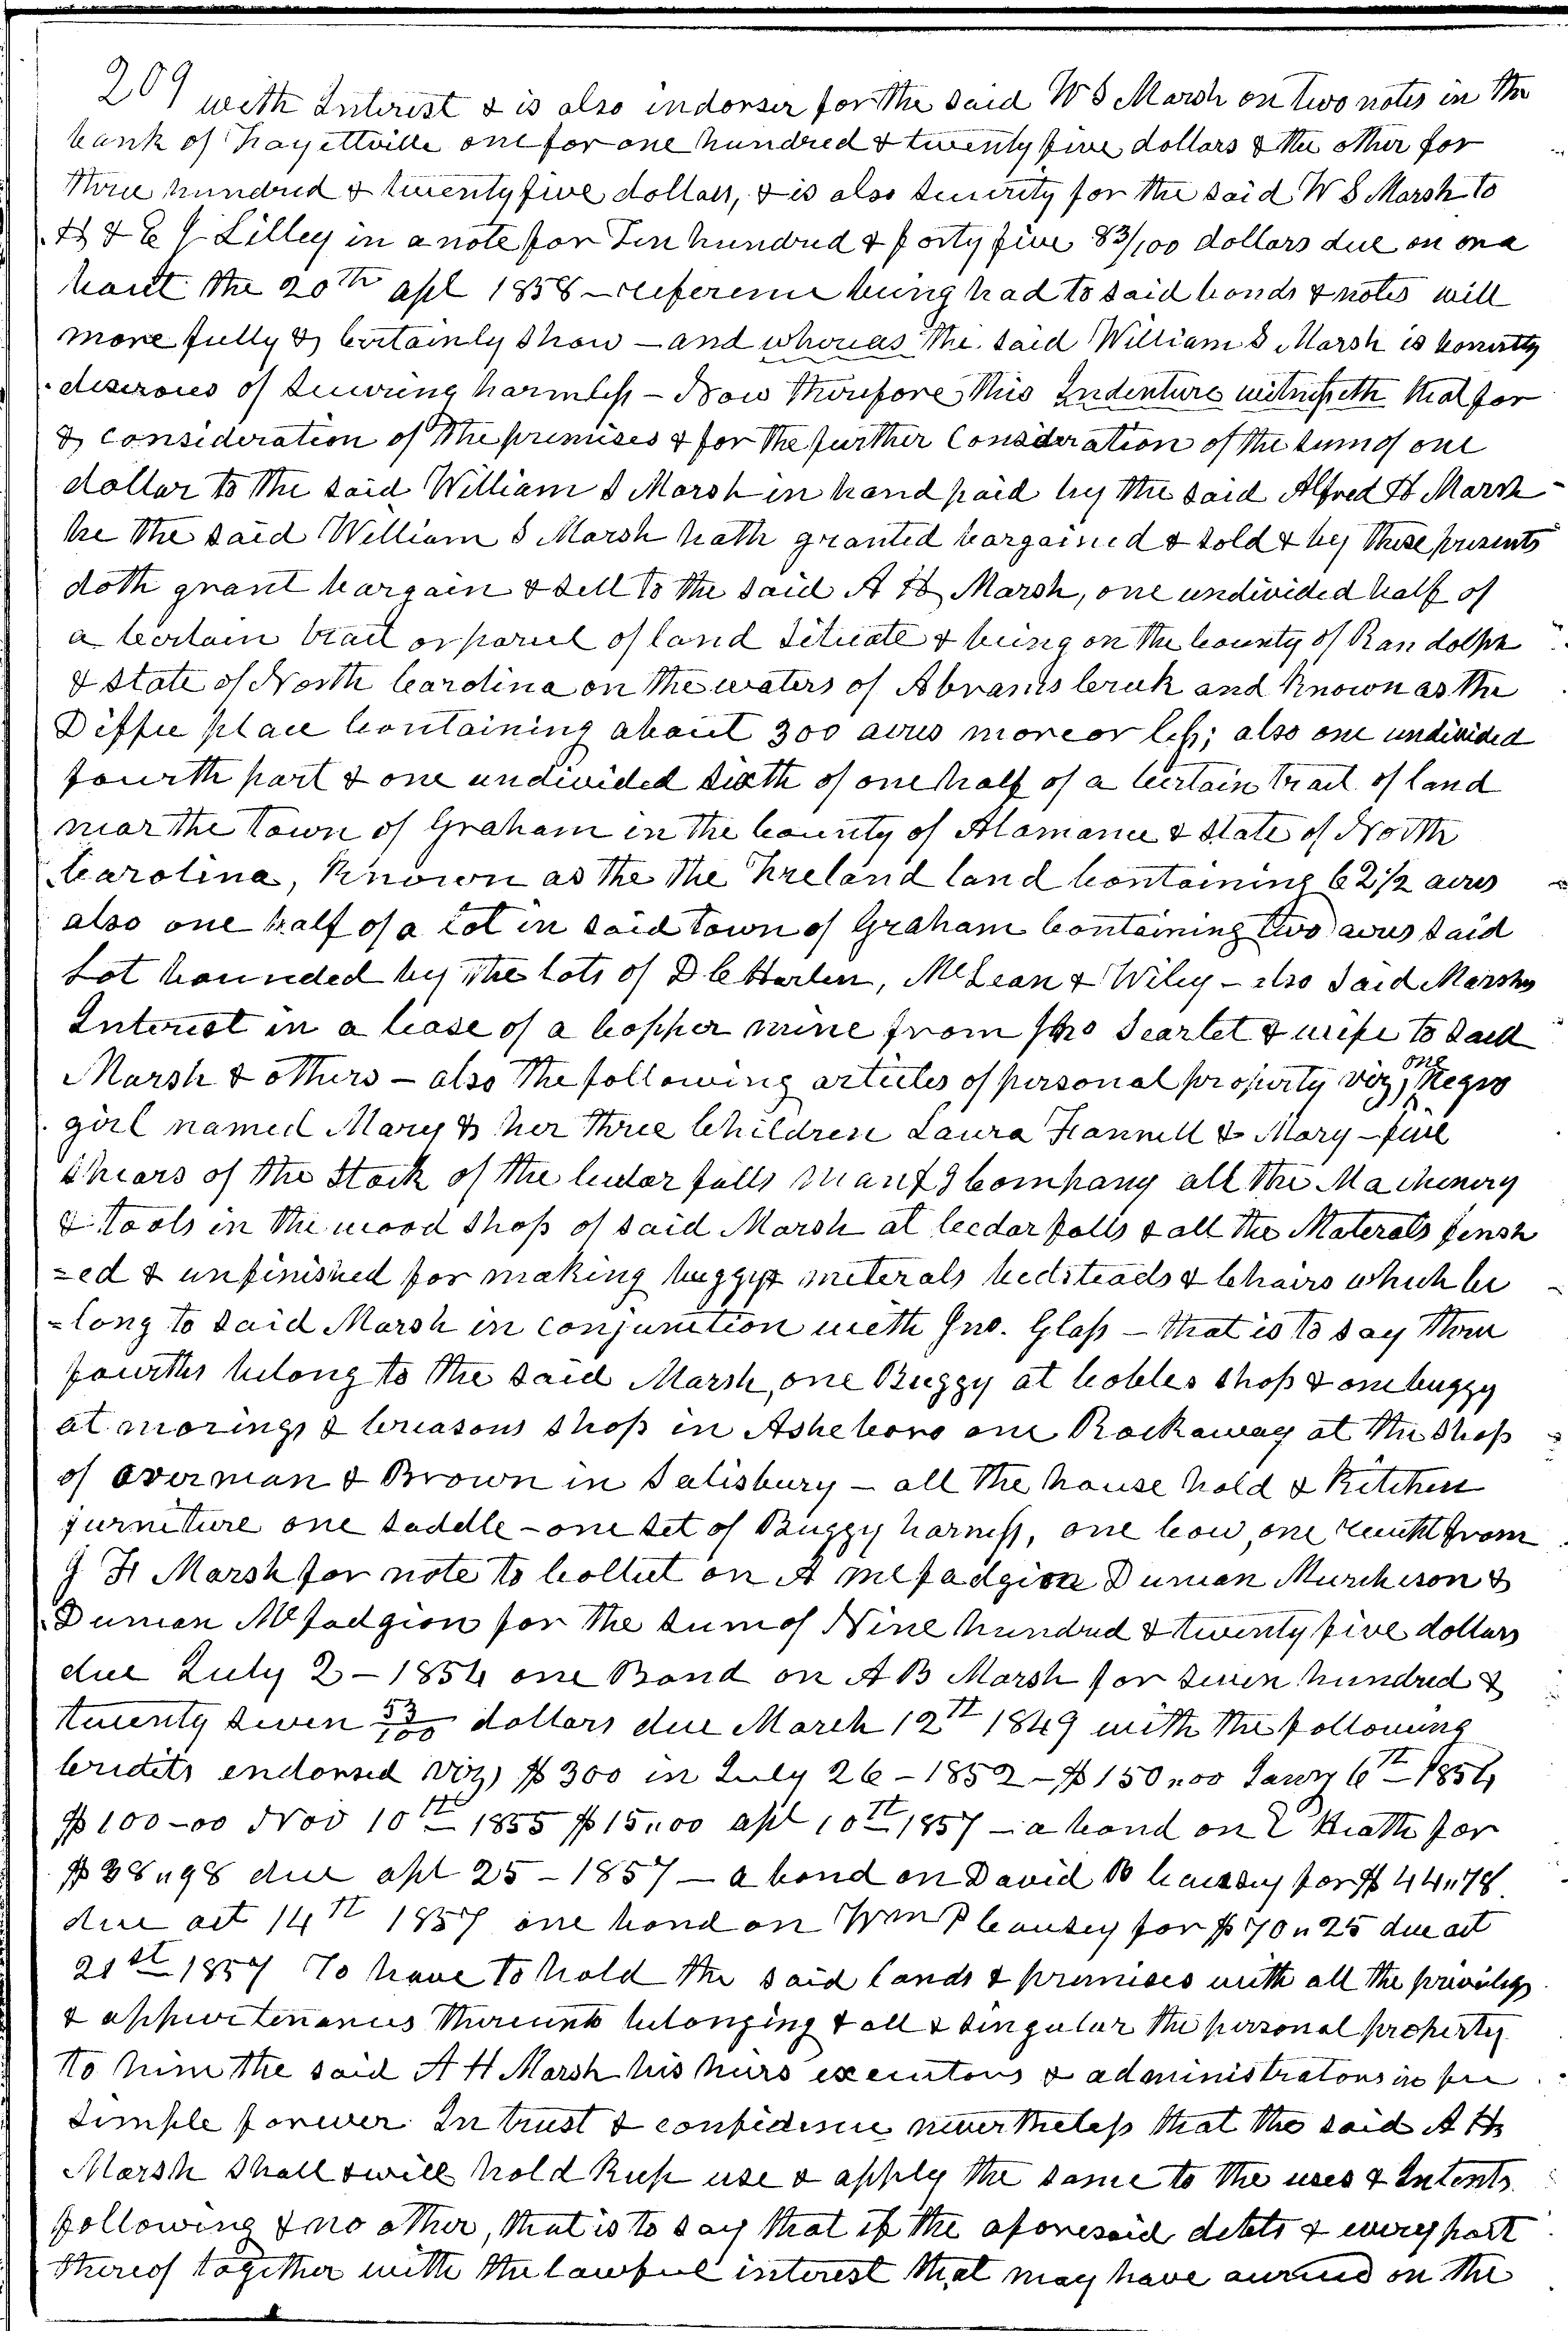 209 with Interest & is also indorser for the said W S Marsh on two notes in the
bank of Fayettville one for one hundred & twenty five dollars & the other for
three hundred & twenty five dollars, & is also security for the said W S Marsh to
& E J Lilley in a note for Ten hundred & forty five 83/100 dollars due on or a
bout the 20th apl 1858 – reference being had to said bonds & notes will
more fully & certainly show – and whereas the said William S Marsh is honestly
desirous of securing harmless – Now therefore this Indenture witnesseth that for
& consideration of the premises & for the further Consideration of the sum of one
dollar to the said William S Marsh in hand paid by the said Alfred H Marsh
he the said William S Marsh hath granted bargained & sold & by these presents
doth grant bargain & sell to the said A H Marsh, one undivided half of
a certain tract or parcel of land situate & being on the County of Randolph
& state of North Carolina on the waters of Abrams Creek and known as the
Diffee place Containing about 300 acres more or less; also one undivided
fourth part & one undivided sixth of one half of a certain tract of land
near the town of Graham in the County of Alamance & State of North
Carolina, known as the the Freeland land Containing 62 1/2 acres
also one half of a lot in said town of Graham Containing two acres said
Lot bounded by the lots of D C Harden, McLean & Wiley – also said Marshs
Interest in a lease of a Copper mine from Jno Scarlet & wife to said
Marsh & others – also the following articles of personal property viz, one Negro
girl named Mary & her three Children Laura & Mary – five
shears of the Stock of the Cedar falls Manfg Company all the Machinery
& tools in the wood shop of said Marsh at Ceedar falls & all the Materals finsh
=ed & unfinished for making buggys meterals bedsteads & Chairs which be
=long to said Marsh in conjunction with Jno. Glass – that is to say three
fourths belong to the said Marsh, one Buggy at Cobles shop & one buggy
at morings & Creasons shop in Asheboro one Rockaway at the Shop
of Overman & Brown in Salisbury – all the house hold & Kitchen
furniture one saddle – one set of Buggy harness, one Cow, one receipt from
J H Marsh for note to Collect on A McFadgion Duncan Murcheson &
Duncan McFadgion for the sum of Nine hundred & twenty five dollars
due July 2 – 1854 one Bond on A B Marsh for seven hundred &
twenty seven 53/100 dollars due March 12th 1849 with the following
Credits endorsed viz, $300 in July 26 – 1852 – $150"00 Jany 6th – 1854
$100-00 Nov 10th 1855 $15"00 apl 10th 1857 – a bond on for
$38"98 due apl 25 – 1857 – a bond on David B Causey for $44"78
due oct 14th 1857 one bond on Wm P Causey for $70"25 due oct
21st 1857 To have to hold the said lands & premises with all the privileges
& appurtenances thereunto belonging & all & singular the personal property
to him the said A H Marsh his heirs executors & administrators in fee
simple forever In trust & confidence nevertheless that the said A H
Marsh shall & will hold Keep use & apply the same to the uses & Intents
following & no other, that is to say that if the aforesaid debts & every part
thereof together with the lawful interest that may have accrued on the